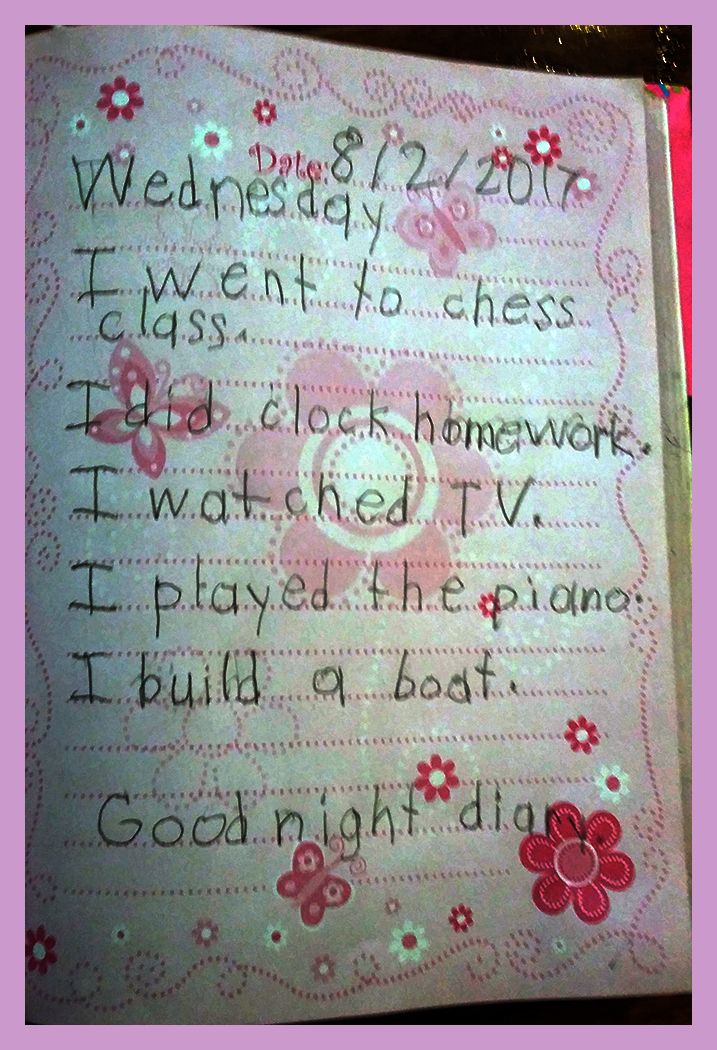 Date: 8/2/2017
Wednesday
I went to chess
class.
I did clock homework.
I watched TV.
I played the piano.
I build a boat.
Good night diary.